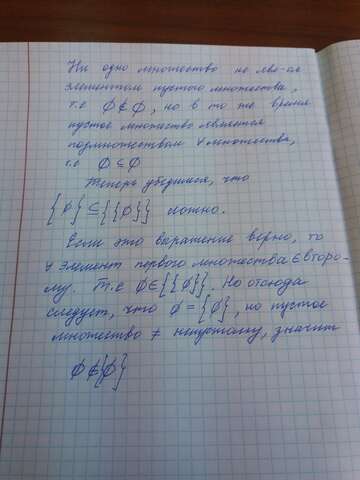 Ни одно множество не явл-ся
элементом пустого множества,
т.е ∅ ∉ ∅, но в то же время
пустое множество является
подмножеством ∀ множества,
т.е ∅ ⊆ ∅
Теперь убедимся, что
{∅} ⊆ {{∅}} ложно.
Если это выражение верно, то
∀ элемент первого множества ∈ второ-
му. Т.е ∅ ∈ {{∅}}. Но отсюда
следует, что ∅ = {∅}, но пустое
множество ≠ непустому, значит
∅ ∉ {∅}